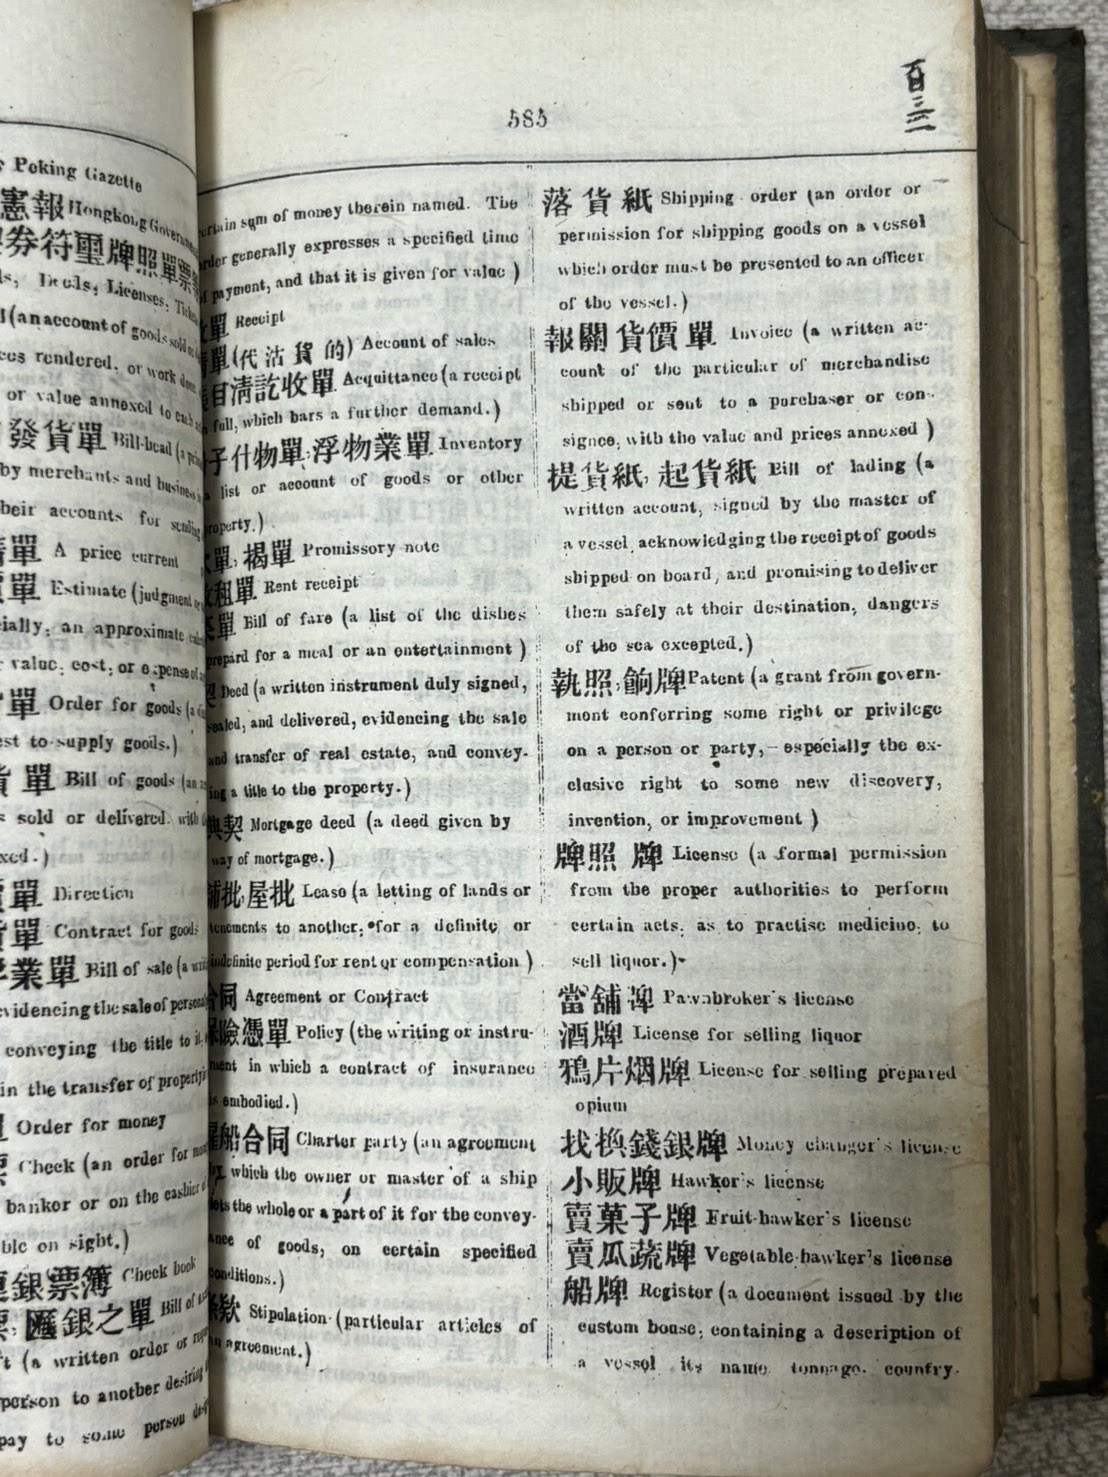 Peking Gazette
憲報 Hongkong
券符璽牌照單票
Deeds, Licenses,
(an account of goods sold
rendered, or work done
or value annexed to
發貨單 Bill-head (a
by merchants and business
their accounts for sending
單 A price current
單 Estimate (judgment
an approximate
value, cost, or expense of
單 Order for goods (a
to supply goods.)
貨單 Bill of goods (an
sold or delivered, with
單 Direction
單 Contract for goods
業單 Bill of sale (a
evidencing the sale of personal
conveying the title to it,
in the transfer of property
Order for money
Check (an order for
banker or on the cashier
on sight.)
銀票簿 Check book
匯銀之單 Bill of
(a written order or
person to another desiring
pay to some person
585
百三三
certain sum of money therein named. The
order generally expresses a specified time
of payment, and that it is given for value )
單 Receipt
單 (代沽貨的) Account of sales
目清訖收單 Acquittance (a receipt
full, which bars a further demand.)
子什物單, 浮物業單 Inventory
list or account of goods or other
property.)
單, 揭單 Promissory note
收租單 Rent receipt
菜單 Bill of fare (a list of the dishes
prepard for a meal or an entertainment )
契 Deed (a written instrument duly signed,
sealed, and delivered, evidencing the sale
and transfer of real estate, and convey-
ing a title to the property.)
典契 Mortgage deed (a deed given by
way of mortgage.)
舖批, 屋批 Lease (a letting of lands or
tenements to another, for a definite or
indefinite period for rent or compensation )
合同 Agreement or Contract
保險憑單 Policy (the writing or instru-
ment in which a contract of insurance
is embodied.)
船合同 Charter party (an agreement
by which the owner or master of a ship
lets the whole or a part of it for the convey-
ance of goods, on certain specified
conditions.)
條欵 Stipulation (particular articles of
an agreement.)
落貨紙 Shipping order (an order or
permission for shipping goods on a vessel
which order must be presented to an officer
of the vessel.)
報關貨價單 Invoice (a written ac-
count of the particular of merchandise
shipped or sent to a purchaser or con-
signee, with the value and prices annexed )
提貨紙, 起貨紙 Bill of lading (a
written account, signed by the master of
a vessel, acknowledging the receipt of goods
shipped on board, and promising to deliver
them safely at their destination, dangers
of the sea excepted.)
執照, 餉牌 Patent (a grant from govern-
ment conferring some right or privilege
on a person or party,- especially the ex-
clusive right to some new discovery,
invention, or improvement )
牌照 牌 License (a formal permission
from the proper authorities to perform
certain acts, as to practise medicine, to
sell liquor.)
當舖牌 Pawnbroker's license
酒牌 License for selling liquor
鴉片烟牌 License for selling prepared
opium
找換錢銀牌 Money changer's license
小販牌 Hawker's license
賣菓子牌 Fruit-hawker's license
賣瓜蔬牌 Vegetable-hawker's license
船牌 Register (a document issued by the
custom house, containing a description of
a vessel its name tonnage, country,